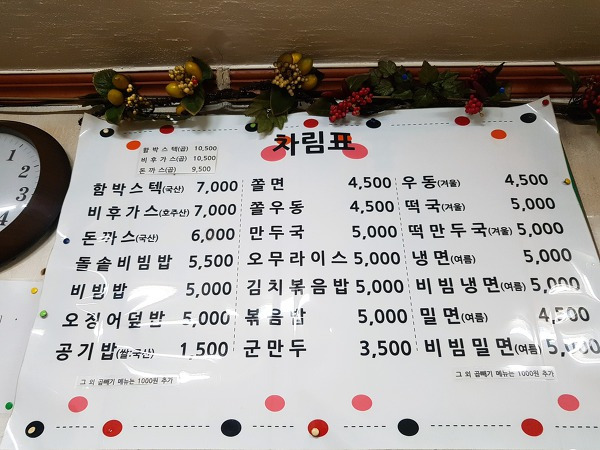 차림표
함박스텍(곱) 10,500
비후가스(곱) 10,500
돈까스(곱) 9,500
함박스텍(국산) 7,000
비후가스(호주산) 7,000
돈까스(국산) 6,000
돌솥비빔밥 5,500
비빔밥 5,000
오징어덮밥 5,000
공기밥(쌀:국산) 1,500
쫄면 4,500
쫄우동 4,500
만두국 5,000
오무라이스 5,000
김치볶음밥 5,000
볶음밥 5,000
군만두 3,500
우동(겨울) 4,500
떡국(겨울) 5,000
떡만두국(겨울) 5,000
냉면(여름) 5,000
비빔냉면(여름) 5,000
밀면(여름) 4,500
비빔밀면(여름) 5,000
그 외 곱빼기 메뉴는 1000원 추가
그 외 곱빼기 메뉴는 1000원 추가
1
2
3
4